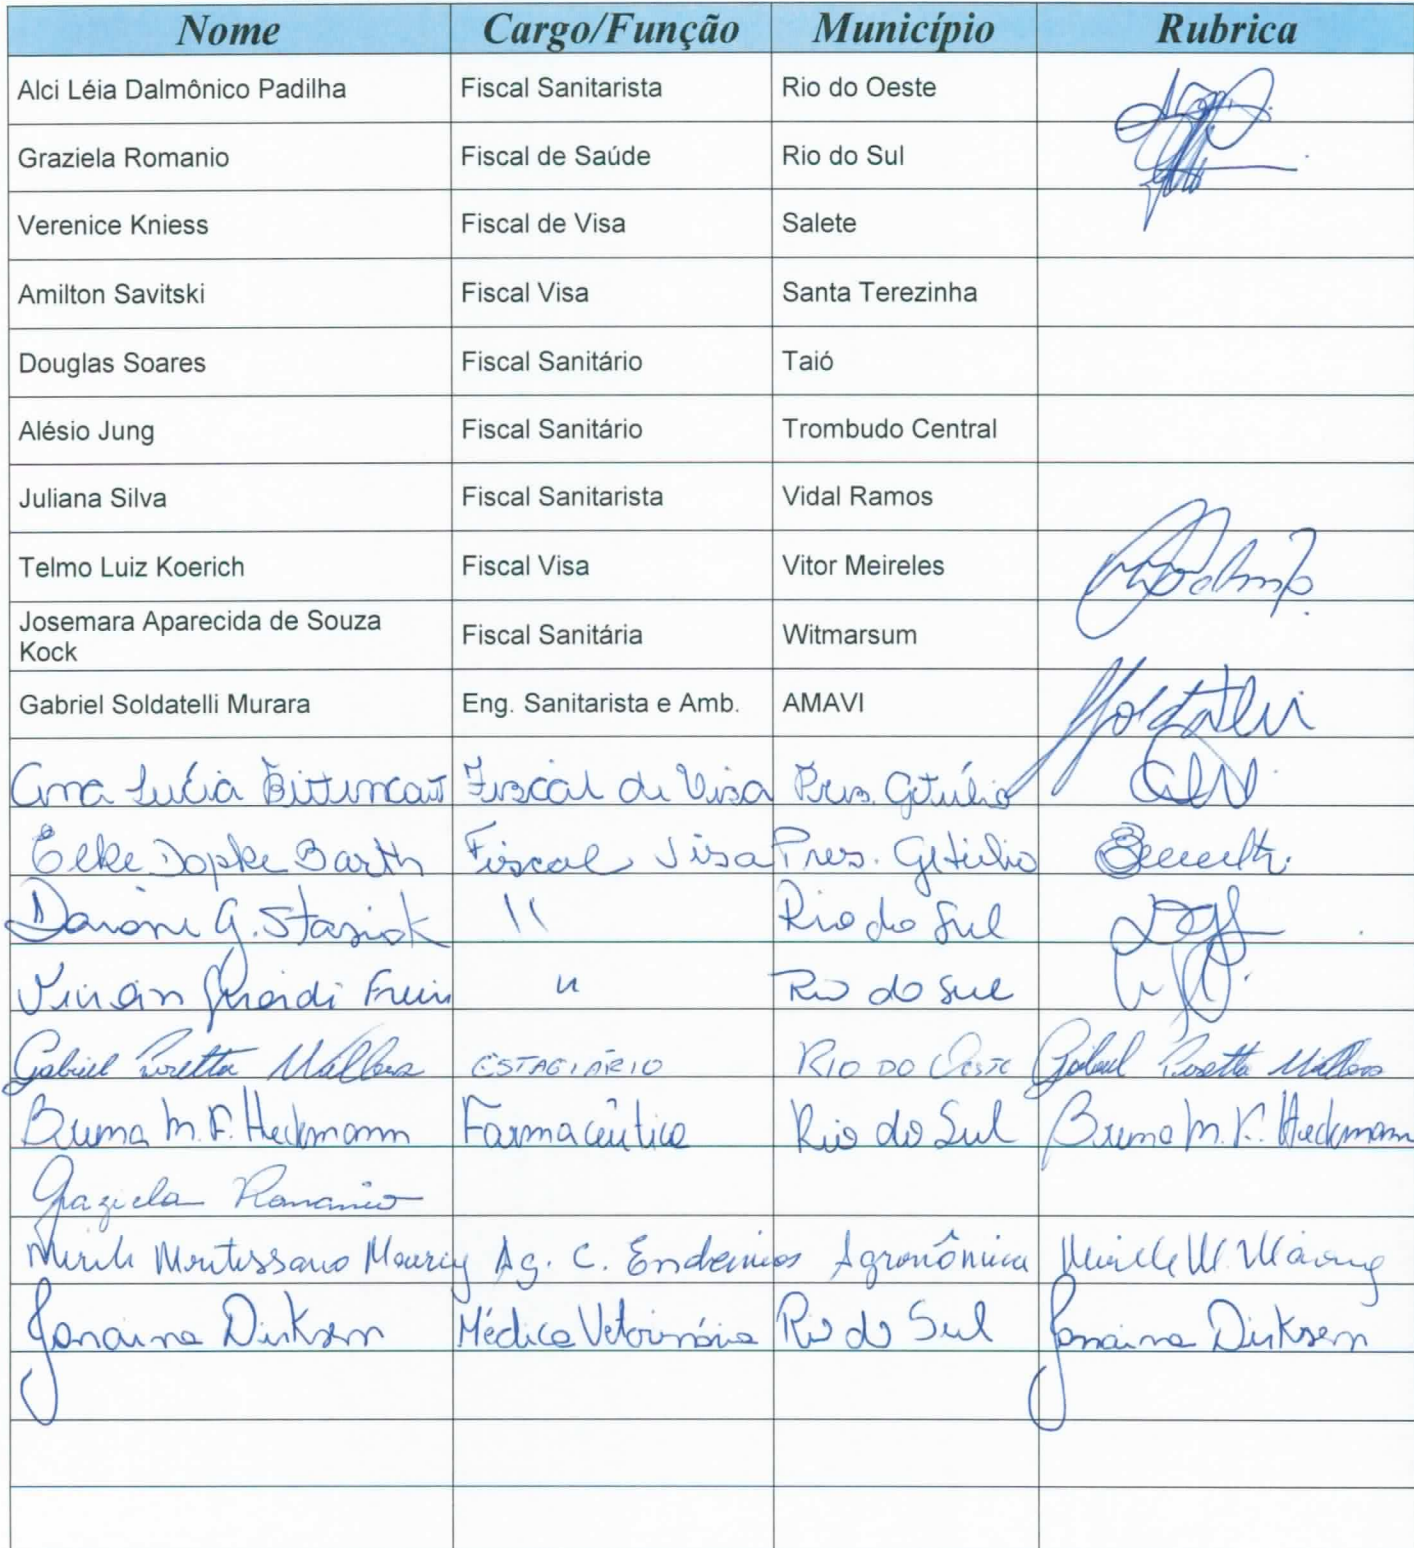 Nome Cargo/Função Município Rubrica
Alci Léia Dalmônico Padilha Fiscal Sanitarista Rio do Oeste
Graziela Romanio Fiscal de Saúde Rio do Sul
Verenice Kniess Fiscal de Visa Salete
Amilton Savitski Fiscal Visa Santa Terezinha
Douglas Soares Fiscal Sanitário Taió
Alésio Jung Fiscal Sanitário Trombudo Central
Juliana Silva Fiscal Sanitarista Vidal Ramos
Telmo Luiz Koerich Fiscal Visa Vitor Meireles
Josemara Aparecida de Souza
Kock Fiscal Sanitária Witmarsum
Gabriel Soldatelli Murara Eng. Sanitarista e Amb. AMAVI
Ana Lúcia Fiscal de Visa Pres. Getúlio
Elke Dopke Barth Fiscal Visa Pres. Getúlio
G. Stasiak " Rio do Sul
" Rio do Sul
Gabriel ESTAGIÁRIO RIO DO OESTE Gabriel
Bruna M. F. Heckmann Farmacêutica Rio do Sul Bruna M. F. Heckmann
Graziela Romanio
Ag. C. Endemias Agronômica
Janaina Dirksen Médica Veterinária Rio do Sul Janaina Dirksen